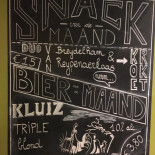 SNACK
van de
MAAND
DUO VAN
Breydelham &
Reypenaerkaas
€15
KROKET
BIER van de MAAND
KLUIZ
TRIPLE
blond